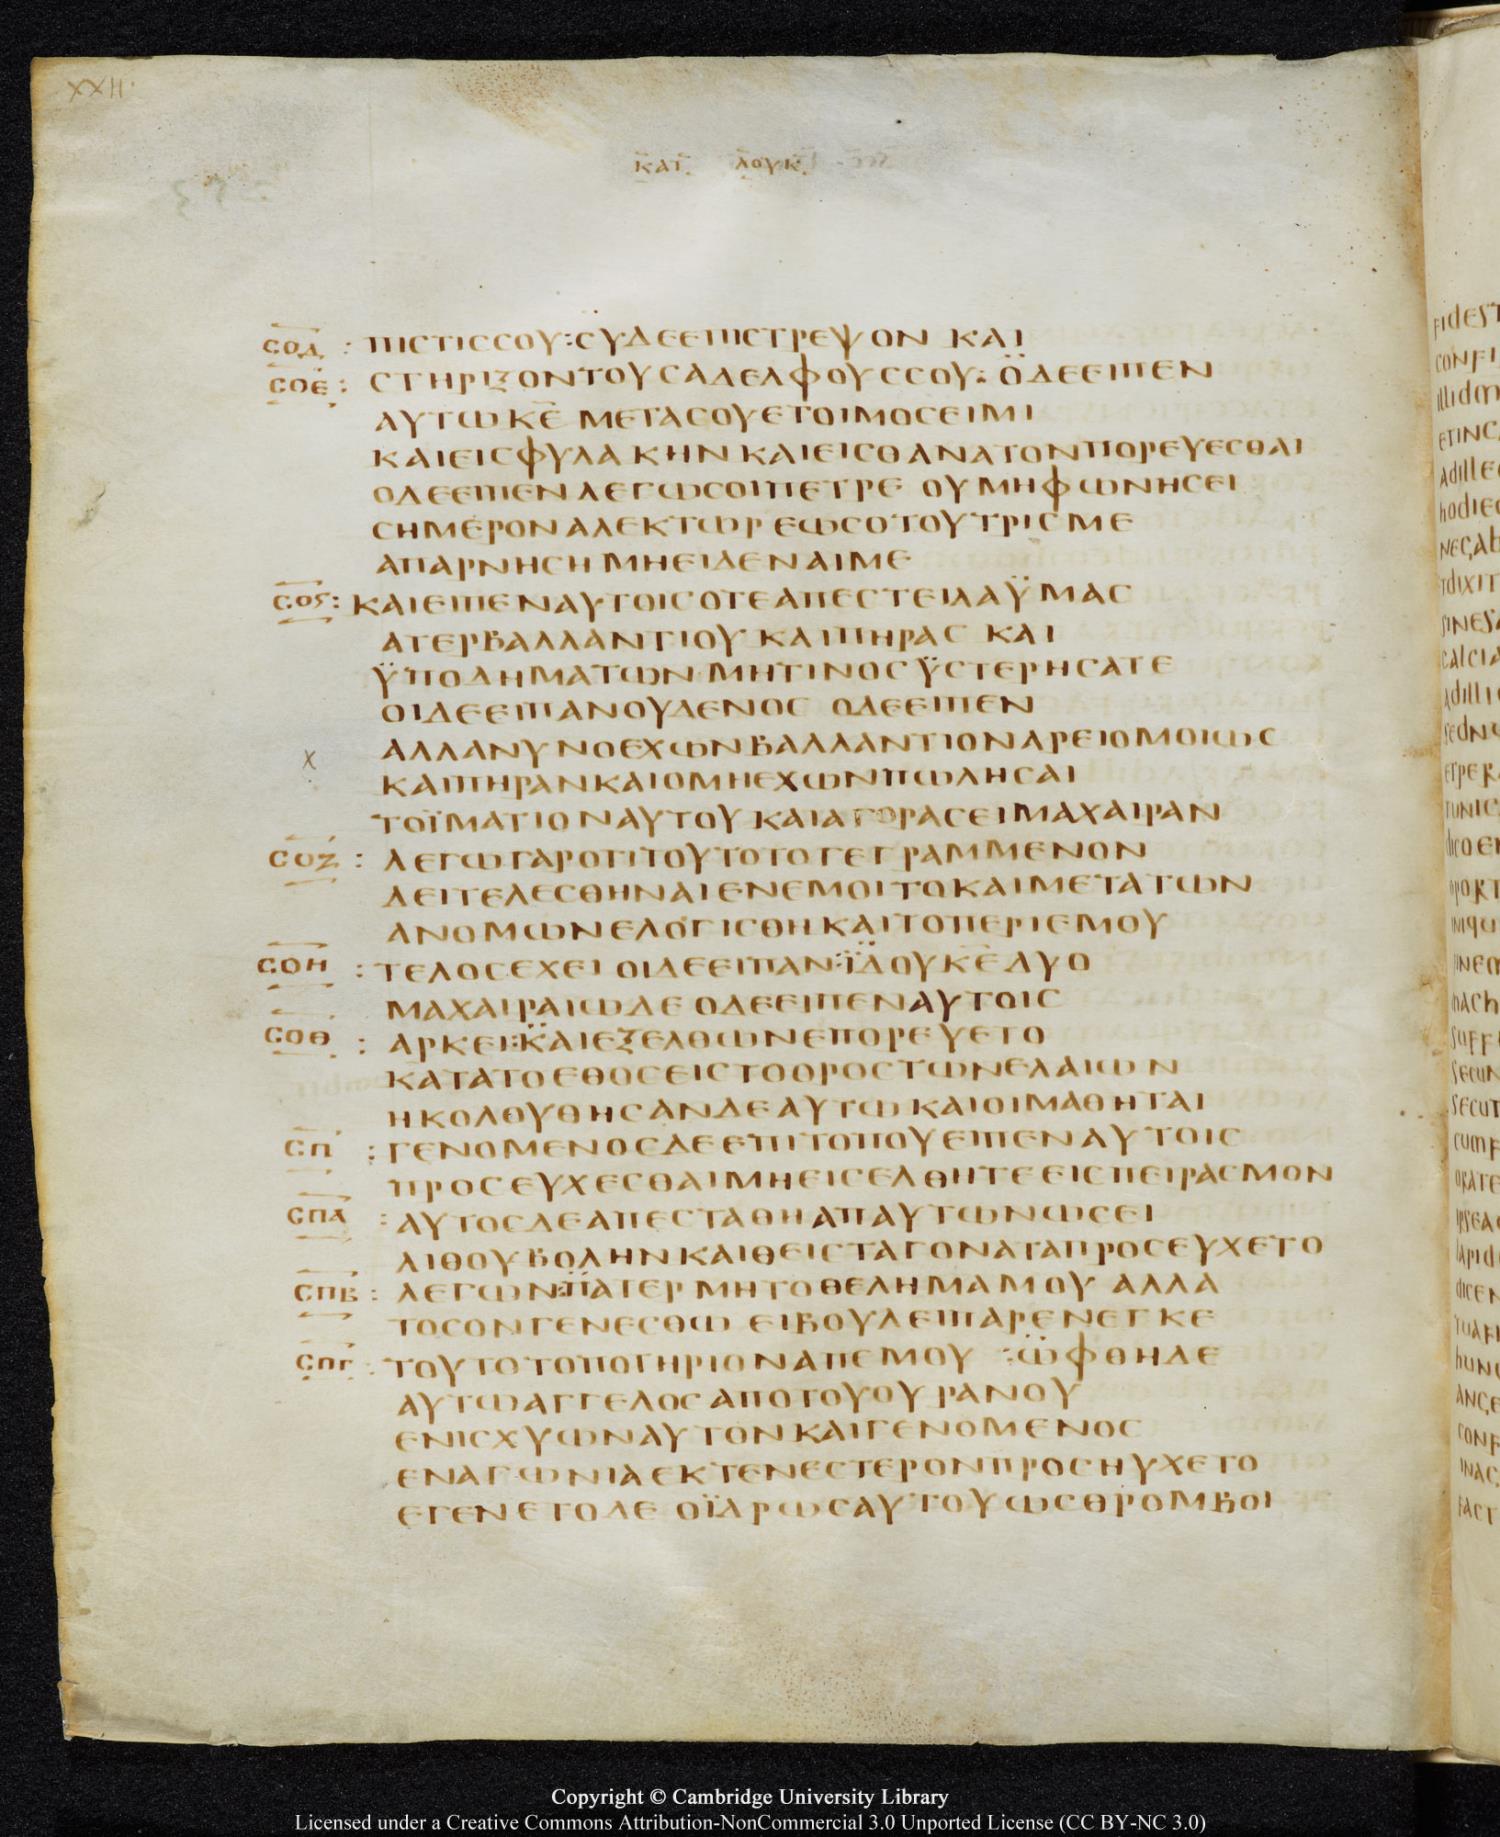 XXII
ΚΑΤ ΛΟΥΚ
ϹΟΔ : ΠΙϹΤΙϹϹΟΥ:ϹΥΔΕΕΠΙϹΤΡΕΨΟΝ ΚΑΙ
ϹΟΕ : ϹΤΗΡΙΖΟΝΤΟΥϹΑΔΕΛΦΟΥϹϹΟΥ: ΟΔΕΕΙΠΕΝ
ΑΥΤΩΚΕ ΜΕΤΑϹΟΥΕΤΟΙΜΟϹΕΙΜΙ
ΚΑΙΕΙϹΦΥΛΑΚΗΝΚΑΙΕΙϹΘΑΝΑΤΟΝΠΟΡΕΥΕϹΘΑΙ
ΟΔΕΕΙΠΕΝΛΕΓΩϹΟΙΠΕΤΡΕ ΟΥΜΗΦΩΝΗϹΕΙ
ϹΗΜΕΡΟΝΑΛΕΚΤΩΡ ΕΩϹΟΤΟΥΤΡΙϹΜΕ
ΑΠΑΡΝΗϹΗΜΗΕΙΔΕΝΑΙΜΕ
ϹΟϚ : ΚΑΙΕΙΠΕΝΑΥΤΟΙϹΟΤΕΑΠΕϹΤΕΙΛΑΫΜΑϹ
ΑΤΕΡΒΑΛΛΑΝΤΙΟΥ ΚΑΙΠΗΡΑϹ ΚΑΙ
ΫΠΟΔΗΜΑΤΩΝ·ΜΗΤΙΝΟϹΫϹΤΕΡΗϹΑΤΕ
ΟΙΔΕΕΙΠΑΝΟΥΔΕΝΟϹ ΟΔΕΕΙΠΕΝ
ΑΛΛΑΝΥΝΟΕΧΩΝΒΑΛΛΑΝΤΙΟΝΑΡΕΙΟΜΟΙΩϹ
Χ
ΚΑΙΠΗΡΑΝΚΑΙΟΜΗΕΧΩΝΠΩΛΗϹΑΙ
ΤΟΪΜΑΤΙΟΝΑΥΤΟΥΚΑΙΑΓΟΡΑϹΕΙΜΑΧΑΙΡΑΝ
ϹΟΖ : ΛΕΓΩΓΑΡΟΤΙΤΟΥΤΟΤΟΓΕΓΡΑΜΜΕΝΟΝ
ΔΕΙΤΕΛΕϹΘΗΝΑΙΕΝΕΜΟΙΤΟΚΑΙΜΕΤΑΤΩΝ
ΑΝΟΜΩΝΕΛΟΓΙϹΘΗΚΑΙΤΟΠΕΡΙΕΜΟΥ
ϹΟΗ : ΤΕΛΟϹΕΧΕΙ ΟΙΔΕΕΙΠΑΝ:ΪΔΟΥΚΕΔΥΟ
ΜΑΧΑΙΡΑΙΩΔΕ ΟΔΕΕΙΠΕΝΑΥΤΟΙϹ
ϹΟΘ : ΑΡΚΕΙ:ΚΑΙΕΞΕΛΘΩΝΕΠΟΡΕΥΕΤΟ
ΚΑΤΑΤΟΕΘΟϹΕΙϹΤΟΟΡΟϹΤΩΝΕΛΑΙΩΝ
ΗΚΟΛΟΥΘΗϹΑΝΔΕΑΥΤΩΚΑΙΟΙΜΑΘΗΤΑΙ
ϹΠ : ΓΕΝΟΜΕΝΟϹΔΕΕΠΙΤΟΠΟΥΕΙΠΕΝΑΥΤΟΙϹ
ΠΡΟϹΕΥΧΕϹΘΑΙΜΗΕΙϹΕΛΘΗΤΕΕΙϹΠΕΙΡΑϹΜΟΝ
ϹΠΑ : ΑΥΤΟϹΔΕΑΠΕϹΤΑΘΗΑΠΑΥΤΩΝΩϹΕΙ
ΛΙΘΟΥΒΟΛΗΝΚΑΙΘΕΙϹΤΑΓΟΝΑΤΑΠΡΟϹΕΥΧΕΤΟ
ϹΠΒ : ΛΕΓΩΝ:ΠΑΤΕΡ ΜΗΤΟΘΕΛΗΜΑΜΟΥ ΑΛΛΑ
ΤΟϹΟΝΓΕΝΕϹΘΩ ΕΙΒΟΥΛΕΙΠΑΡΕΝΕΓΚΕ
ϹΠΓ : ΤΟΥΤΟΤΟΠΟΤΗΡΙΟΝΑΠΕΜΟΥ :ΩΦΘΗΔΕ
ΑΥΤΩΑΓΓΕΛΟϹΑΠΟΤΟΥΟΥΡΑΝΟΥ
ΕΝΙϹΧΥΩΝΑΥΤΟΝΚΑΙΓΕΝΟΜΕΝΟϹ
ΕΝΑΓΩΝΙΑΕΚΤΕΝΕϹΤΕΡΟΝΠΡΟϹΗΥΧΕΤΟ
ΕΓΕΝΕΤΟΔΕ ΟΪΔΡΩϹΑΥΤΟΥΩϹΘΡΟΜΒΟΙ
Copyright © Cambridge University Library
Licensed under a Creative Commons Attribution-NonCommercial 3.0 Unported License (CC BY-NC 3.0)